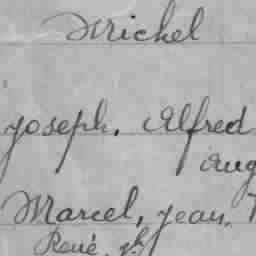 Michel
Joseph. Alfred
Aug
Marcel, Jean,
René,